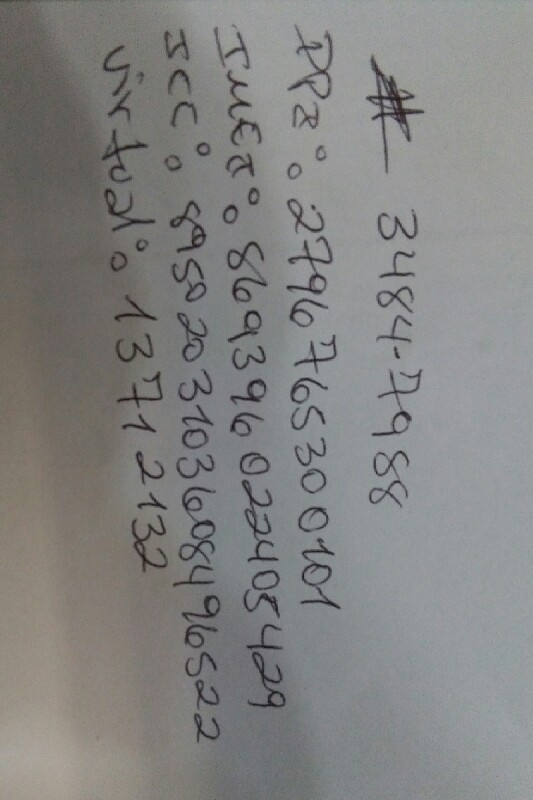 # 3484-7988
DPI: 2796765300101
IMEI: 869396022405429
ICC: 8950203103608496522
Virtual: 13712132